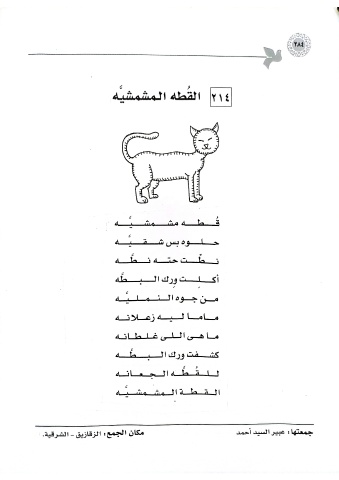 ٢٨٤
٢١٤ القُطه المشمشيَّه
قُطه مشمشيَّه
حلوه بس شقيَّه
نطَّت حته نطَّه
أكلِت وِرك البطَّه
من جوه النمليَّه
ماما ليه زعلانه
ما هى اللى غلطانه
كشفت ورك البطَّه
للقُطَّه الجعانه
القطة المشمشيَّه
جمعتها: عبير السيد أحمد
مكان الجمع: الزقازيق - الشرقية.